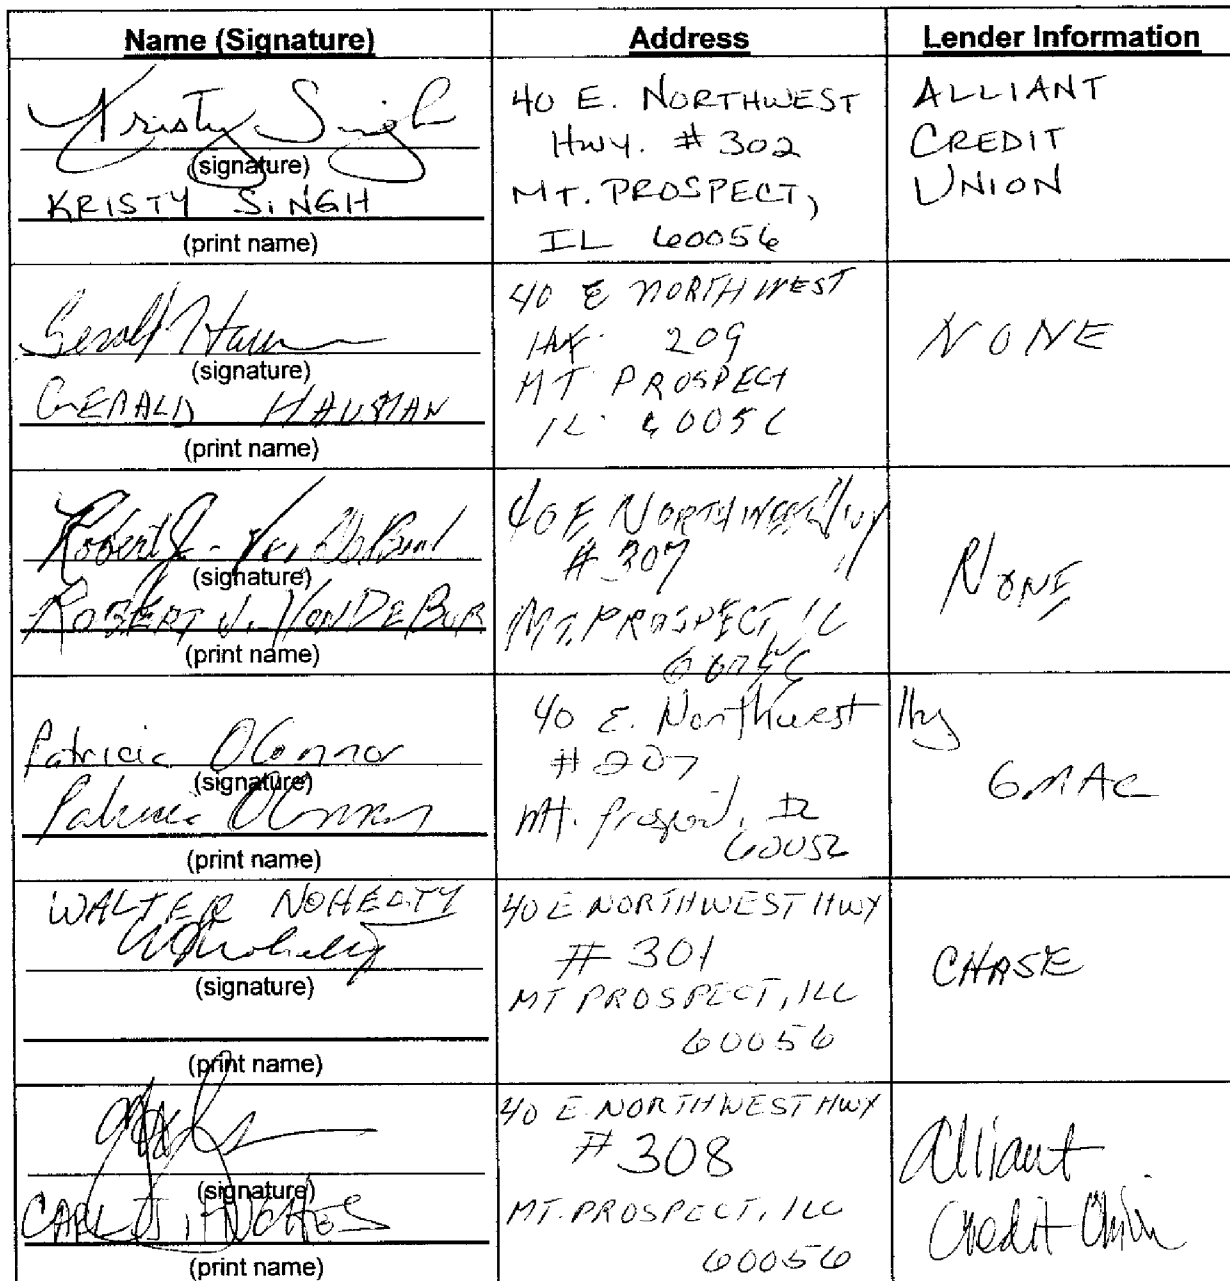 Name (Signature)
Address
Lender Information
Kristy Singh
(signature)
KRISTY SINGH
(print name)
40 E. NORTHWEST
HWY. # 302
MT. PROSPECT,
IL 60056
ALLIANT
CREDIT
UNION
Gerald
(signature)
GERALD HAUSMAN
(print name)
40 E NORTHWEST
209
MT PROSPECT
IL
NONE
Robert J.
(signature)
ROBERT J. VONDEBUR
(print name)
40 E NORTHWEST Hwy
# 307
MT. PROSPECT, IL
NONE
Patricia OConnor
(signature)
Patricia OConnor
(print name)
40 E. Northwest Hwy
# 207
Mt. IL
GMAC
WALTER NOHELTY
(signature)
(print name)
40 E NORTHWEST HWY
# 301
MT PROSPECT, ILL
60056
CHASE
(signature)
CARL J.
(print name)
40 E NORTHWEST HWY
# 308
MT. PROSPECT, ILL
60056
Alliant
Credit Union